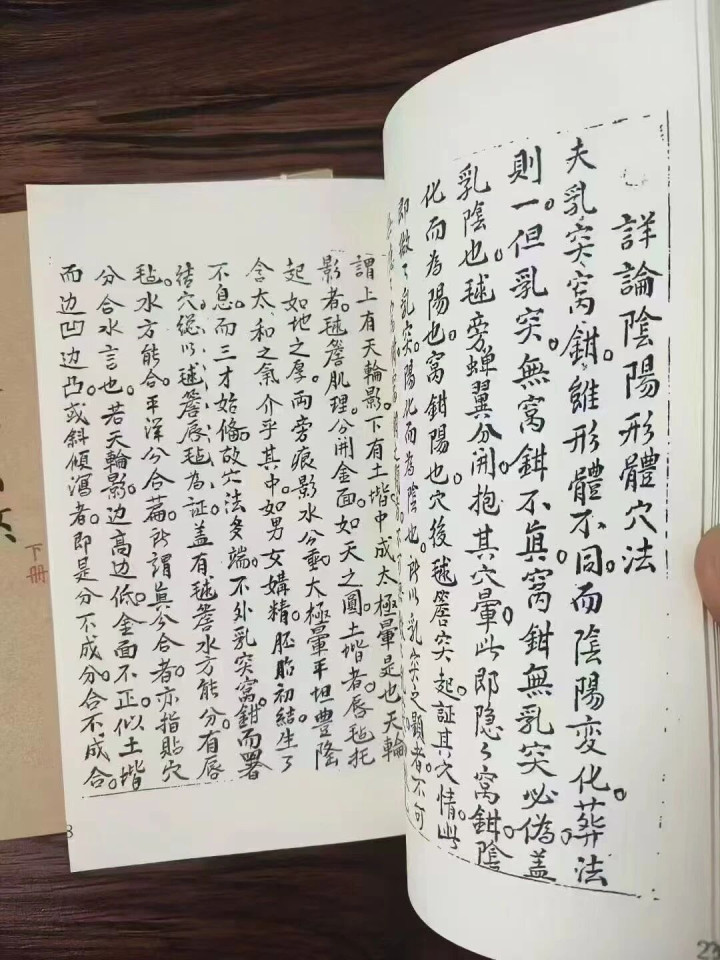 詳論陰陽形體穴法
夫乳突窩鉗。雖形體不同。而陰陽変化。葬法
則一。但乳突無窩鉗不眞。窩鉗無乳突必偽。盖
乳陰也。毬旁蝉翼分開抱其穴暈。此即隐々窩鉗陰
化而為陽也。窩鉗陽也。穴後毬簷突起証其穴情。此
即微々乳突。陽化而為陰也。所以乳突之顕者。不可
謂上有天輪影。下有土堦中成太極暈是也天輪
影者。毬簷肌理。分開金面。如天之圓。土堦者。唇毡托
起如地之厚。両旁痕影水分。大極暈平坦豊隆
含太和之氣介乎其中。如男女媾精。胚胎初結。生々
不息。而三才始俻。故穴法多端。不外乳突窩鉗而署
结穴。総以毬簷唇毡為証。盖有毬簷水方能分。有唇
毡。水方能合。平洋分合篇。所謂眞分合者。亦指貼穴
分合水言也。若天輪影边高边低。金面不正。似土堦
而边凹边凸。或斜傾瀉者。即是分不成分。合不成合。
下册